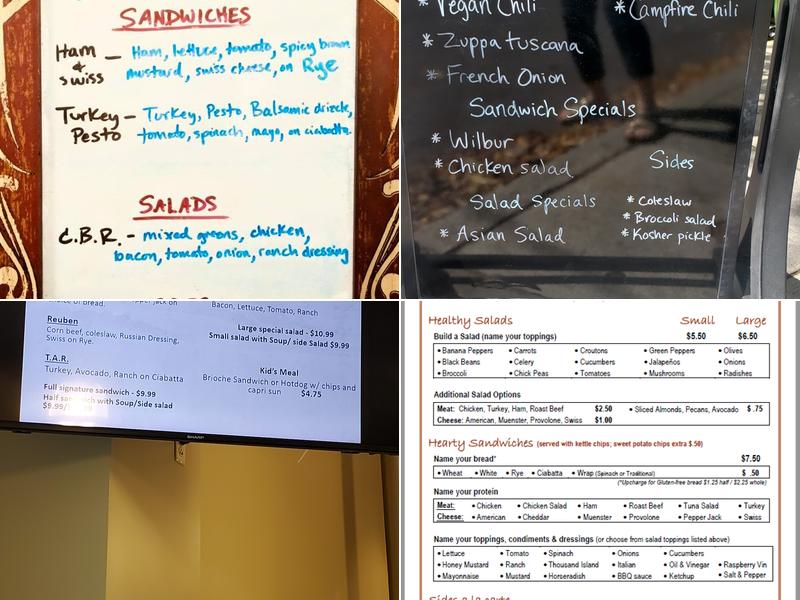 SANDWICHES
Ham & Swiss - Ham, lettuce, tomato, spicy brown
mustard, swiss cheese, on Rye
Turkey Pesto - Turkey, Pesto, Balsamic drizzle,
tomato, spinach, mayo, on ciabatta.
SALADS
C.B.R. - mixed greens, chicken,
bacon, tomato, onion, ranch dressing
* Vegan Chili
* Campfire Chili
* Zuppa tuscana
* French Onion
Sandwich Specials
* Wilbur
* Chicken salad
Sides
Salad Specials
* Coleslaw
* Broccoli salad
* Kosher pickle
* Asian Salad
of bread.
Jack on
Bacon, Lettuce, Tomato, Ranch
Reuben
Corn beef, coleslaw, Russian Dressing,
Swiss on Rye.
Large special salad - $10.99
Small salad with Soup/ side Salad $9.99
T.A.R.
Turkey, Avocado, Ranch on Ciabatta
Kid's Meal
Brioche Sandwich or Hotdog w/ chips and
capri sun $4.75
Full signature sandwich - $9.99
Half sandwich with Soup/Side salad
$9.99/
SHARP
Healthy Salads Small Large
Build a Salad (name your toppings) $5.50 $6.50
• Banana Peppers • Carrots • Croutons • Green Peppers • Olives
• Black Beans • Celery • Cucumbers • Jalapeños • Onions
• Broccoli • Chick Peas • Tomatoes • Mushrooms • Radishes
Additional Salad Options
Meat: Chicken, Turkey, Ham, Roast Beef $2.50 • Sliced Almonds, Pecans, Avocado $ .75
Cheese: American, Muenster, Provolone, Swiss $1.00
Hearty Sandwiches (served with kettle chips; sweet potato chips extra $.50)
Name your bread* $7.50
• Wheat • White • Rye • Ciabatta • Wrap (Spinach or Traditional) $ .50
(*Upcharge for Gluten-free bread $1.25 half / $2.25 whole)
Name your protein
Meat: • Chicken • Chicken Salad • Ham • Roast Beef • Tuna Salad • Turkey
Cheese: • American • Cheddar • Muenster • Provolone • Pepper Jack • Swiss
Name your toppings, condiments & dressings (or choose from salad toppings listed above)
• Lettuce • Tomato • Spinach • Onions • Cucumbers
• Honey Mustard • Ranch • Thousand Island • Italian • Oil & Vinegar • Raspberry Vin
• Mayonnaise • Mustard • Horseradish • BBQ sauce • Ketchup • Salt & Pepper
Sides a la carte